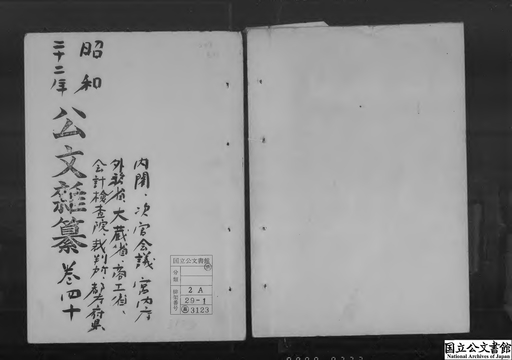 昭和
二十二年
公文雑纂 巻四十
内閣・次官会議 宮内府
外務省、大蔵省、商工省、
会計検査院、裁判所、都道府県
国立公文書館
分類
排架番号
2A
29-1
3123
国立公文書館
National Archives of Japan